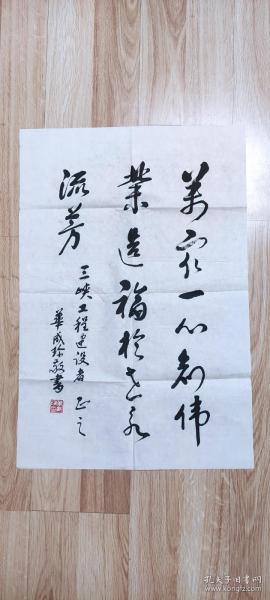 萬眾一心創偉
業造福於世永
流芳
三峽工程建設者 正之
華成珍敬書
孔夫子旧书网